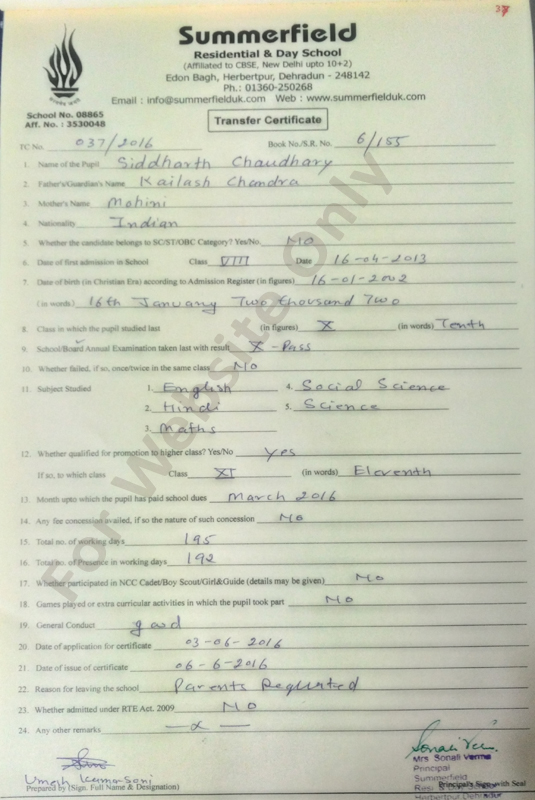 37
Summerfield
Residential & Day School
(Affiliated to CBSE, New Delhi upto 10+2)
Edon Bagh, Herbertpur, Dehradun - 248142
Ph.: 01360-250268
Email : info@summerfielduk.com Web : www.summerfielduk.com
School No. 08865
Aff. No. : 3530048
Transfer Certificate
TC No. 037/2016 Book No./S.R. No. 6/155
1. Name of the Pupil Siddharth Chaudhary
2. Father's/Guardian's Name Kailash Chandra
3. Mother's Name Mohini
4. Nationality Indian
5. Whether the candidate belongs to SC/ST/OBC Category? Yes/No. NO
6. Date of first admission in School Class VIII Date 16-04-2013
7. Date of birth (in Christian Era) according to Admission Register (in figures) 16-01-2002
(in words) 16th January Two thousand Two
8. Class in which the pupil studied last (in figures) X (in words) Tenth
9. School/Board Annual Examination taken last with result X - Pass
10. Whether failed, if so, once/twice in the same class NO
11. Subject Studied 1. English 4. Social Science
2. Hindi 5. Science
3. Maths
12. Whether qualified for promotion to higher class? Yes/No yes
If so, to which class Class XI (in words) Eleventh
13. Month upto which the pupil has paid school dues March 2016
14. Any fee concession availed, if so the nature of such concession NO
15. Total no. of working days 195
16. Total no. of Presence in working days 192
17. Whether participated in NCC Cadet/Boy Scout/Girl&Guide (details may be given) NO
18. Games played or extra curricular activities in which the pupil took part NO
19. General Conduct good
20. Date of application for certificate 03-06-2016
21. Date of issue of certificate 06-6-2016
22. Reason for leaving the school Parents Requested
23. Whether admitted under RTE Act. 2009 NO
24. Any other remarks
For Website Only
Umesh Kumar Soni
Prepared by (Sign. Full Name & Designation)
Sonali Ver
Mrs Sonali Verma
Principal
Summerfield
Principal's Sign with Seal
Herbertpur, Dehradun